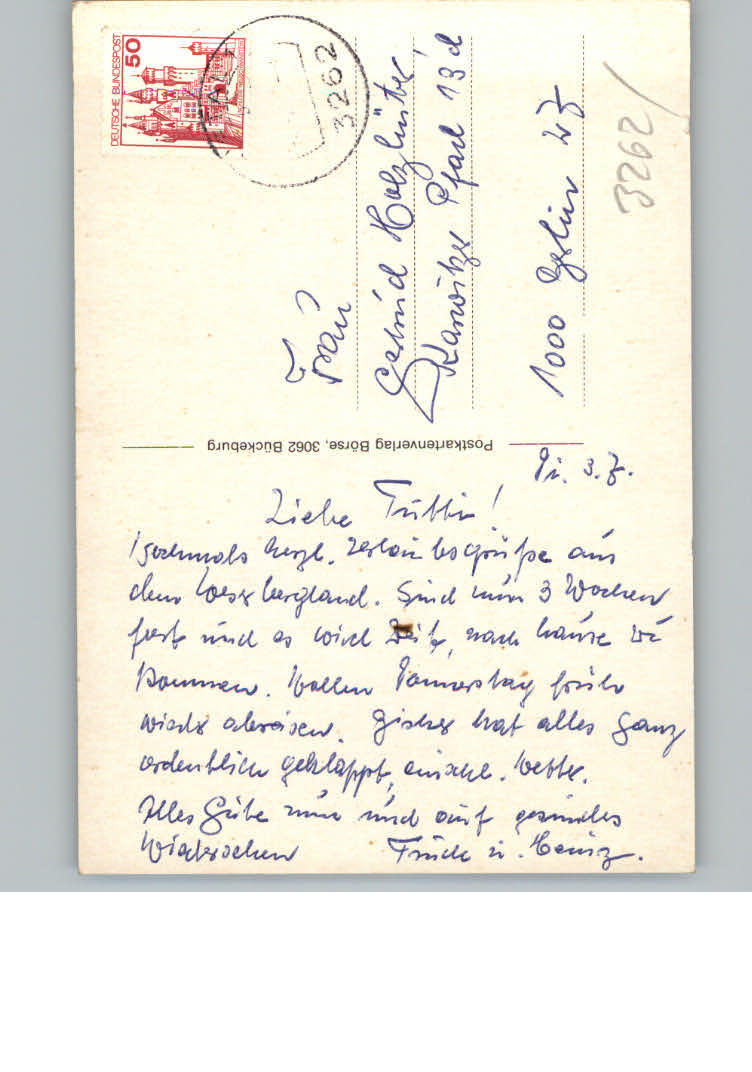 DEUTSCHE BUNDESPOST
50
3262
3262
Frau
Gertrud Holzhüter
Pfad 13d
1000 Berlin 27
Postkartenverlag Börse, 3062 Bückeburg
Di. 3.7.
Liebe
Nochmals herzl. Urlaubsgrüße aus
dem Weserbergland. Sind nun 3 Wochen
fort und es wird Zeit, nach hause zu
kommen. Wollen Donnerstag früh
wieder abreisen. Bisher hat alles ganz
ordentlich geklappt, einschl. Wetter.
Alles Gute nun und auf gesundes
Wiedersehen Trude u. Heinz.